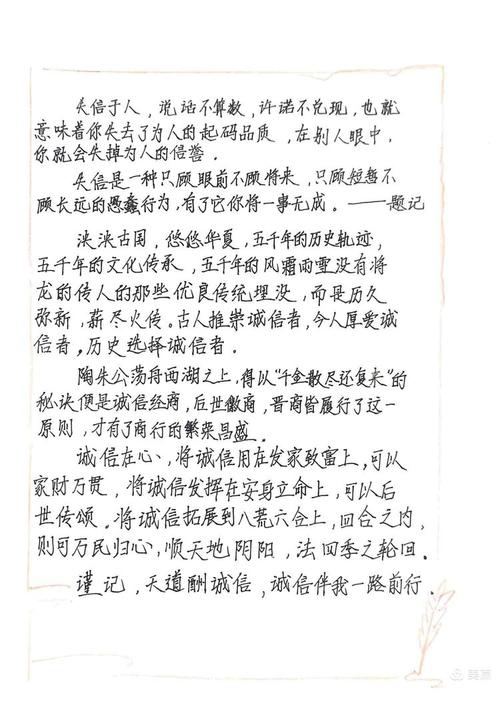 失信于人，说话不算数，许诺不兑现，也就
意味着你失去了为人的起码品质，在别人眼中，
你就会失掉为人的信誉。
失信是一种只顾眼前不顾将来，只顾短暂不
顾长远的愚蠢行为，有了它你将一事无成。——题记
泱泱古国，悠悠华夏，五千年的历史轨迹，
五千年的文化传承，五千年的风霜雨雪没有将
龙的传人的那些优良传统埋没，而是历久
弥新，薪尽火传。古人推崇诚信者，今人厚爱诚
信者，历史选择诚信者。
陶朱公荡舟西湖之上，得以“千金散尽还复来”的
秘诀便是诚信经商，后世徽商，晋商皆履行了这一
原则，才有了商行的繁荣昌盛。
诚信在心，将诚信用在发家致富上，可以
家财万贯，将诚信发挥在安身立命上，可以后
世传颂。将诚信拓展到八荒六合上，四合之内，
则可万民归心，顺天地阴阳，法四季之轮回。
谨记，天道酬诚信，诚信伴我一路前行。
美篇